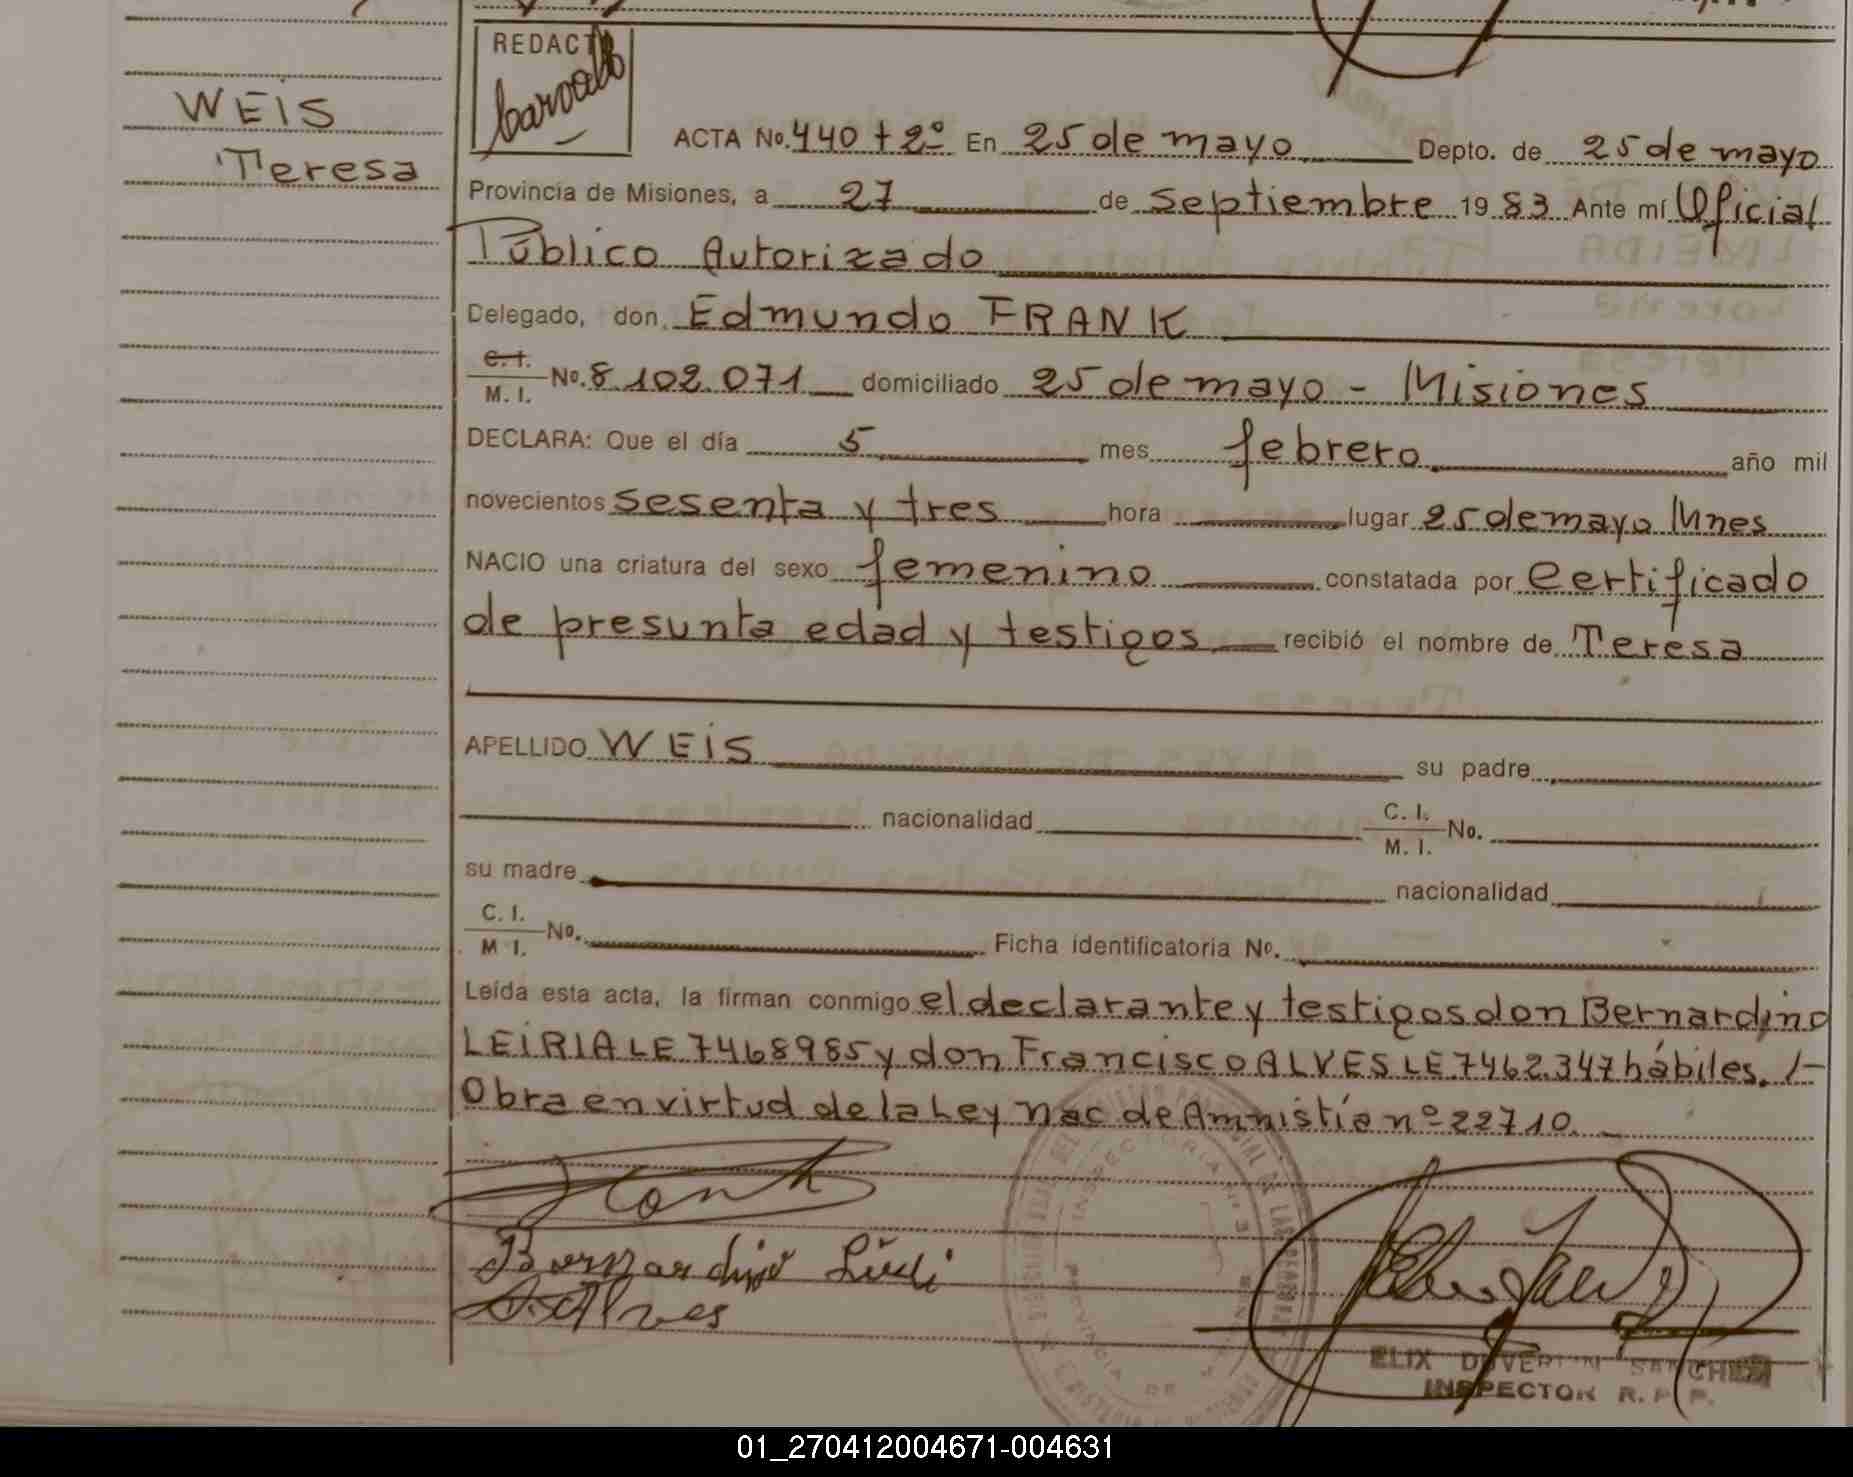 WEIS
Teresa
REDACTÓ
Carvallo
ACTA No. 440 t 2º En 25 de mayo Depto. de 25 de mayo
Provincia de Misiones, a 27 de Septiembre 19 83 Ante mí Oficial
Público Autorizado
Delegado, don Edmundo FRANK
C. I. / M. I. No. 8.102.071 domiciliado 25 de mayo - Misiones
DECLARA: Que el día 5 mes febrero año mil
novecientos sesenta y tres hora lugar 25 de mayo Mnes
NACIO una criatura del sexo femenino constatada por Certificado
de presunta edad y testigos recibió el nombre de Teresa
APELLIDO WEIS su padre
nacionalidad C. I. / M. I. No.
su madre nacionalidad
C. I. / M I. No. Ficha identificatoria No.
Leída esta acta, la firman conmigo el declarante y testigos don Bernardino
LEIRIA LE 7468985 y don Francisco ALVES LE 7.462.347 hábiles. /-
Obra en virtud de la Ley Nac de Amnistía nº 22710.
Bernardino
Alves
INSPECTORIA Nº 3
PROVINCIA DE
SANCHEZ
INSPECTOR R. P. P.
01_270412004671-004631